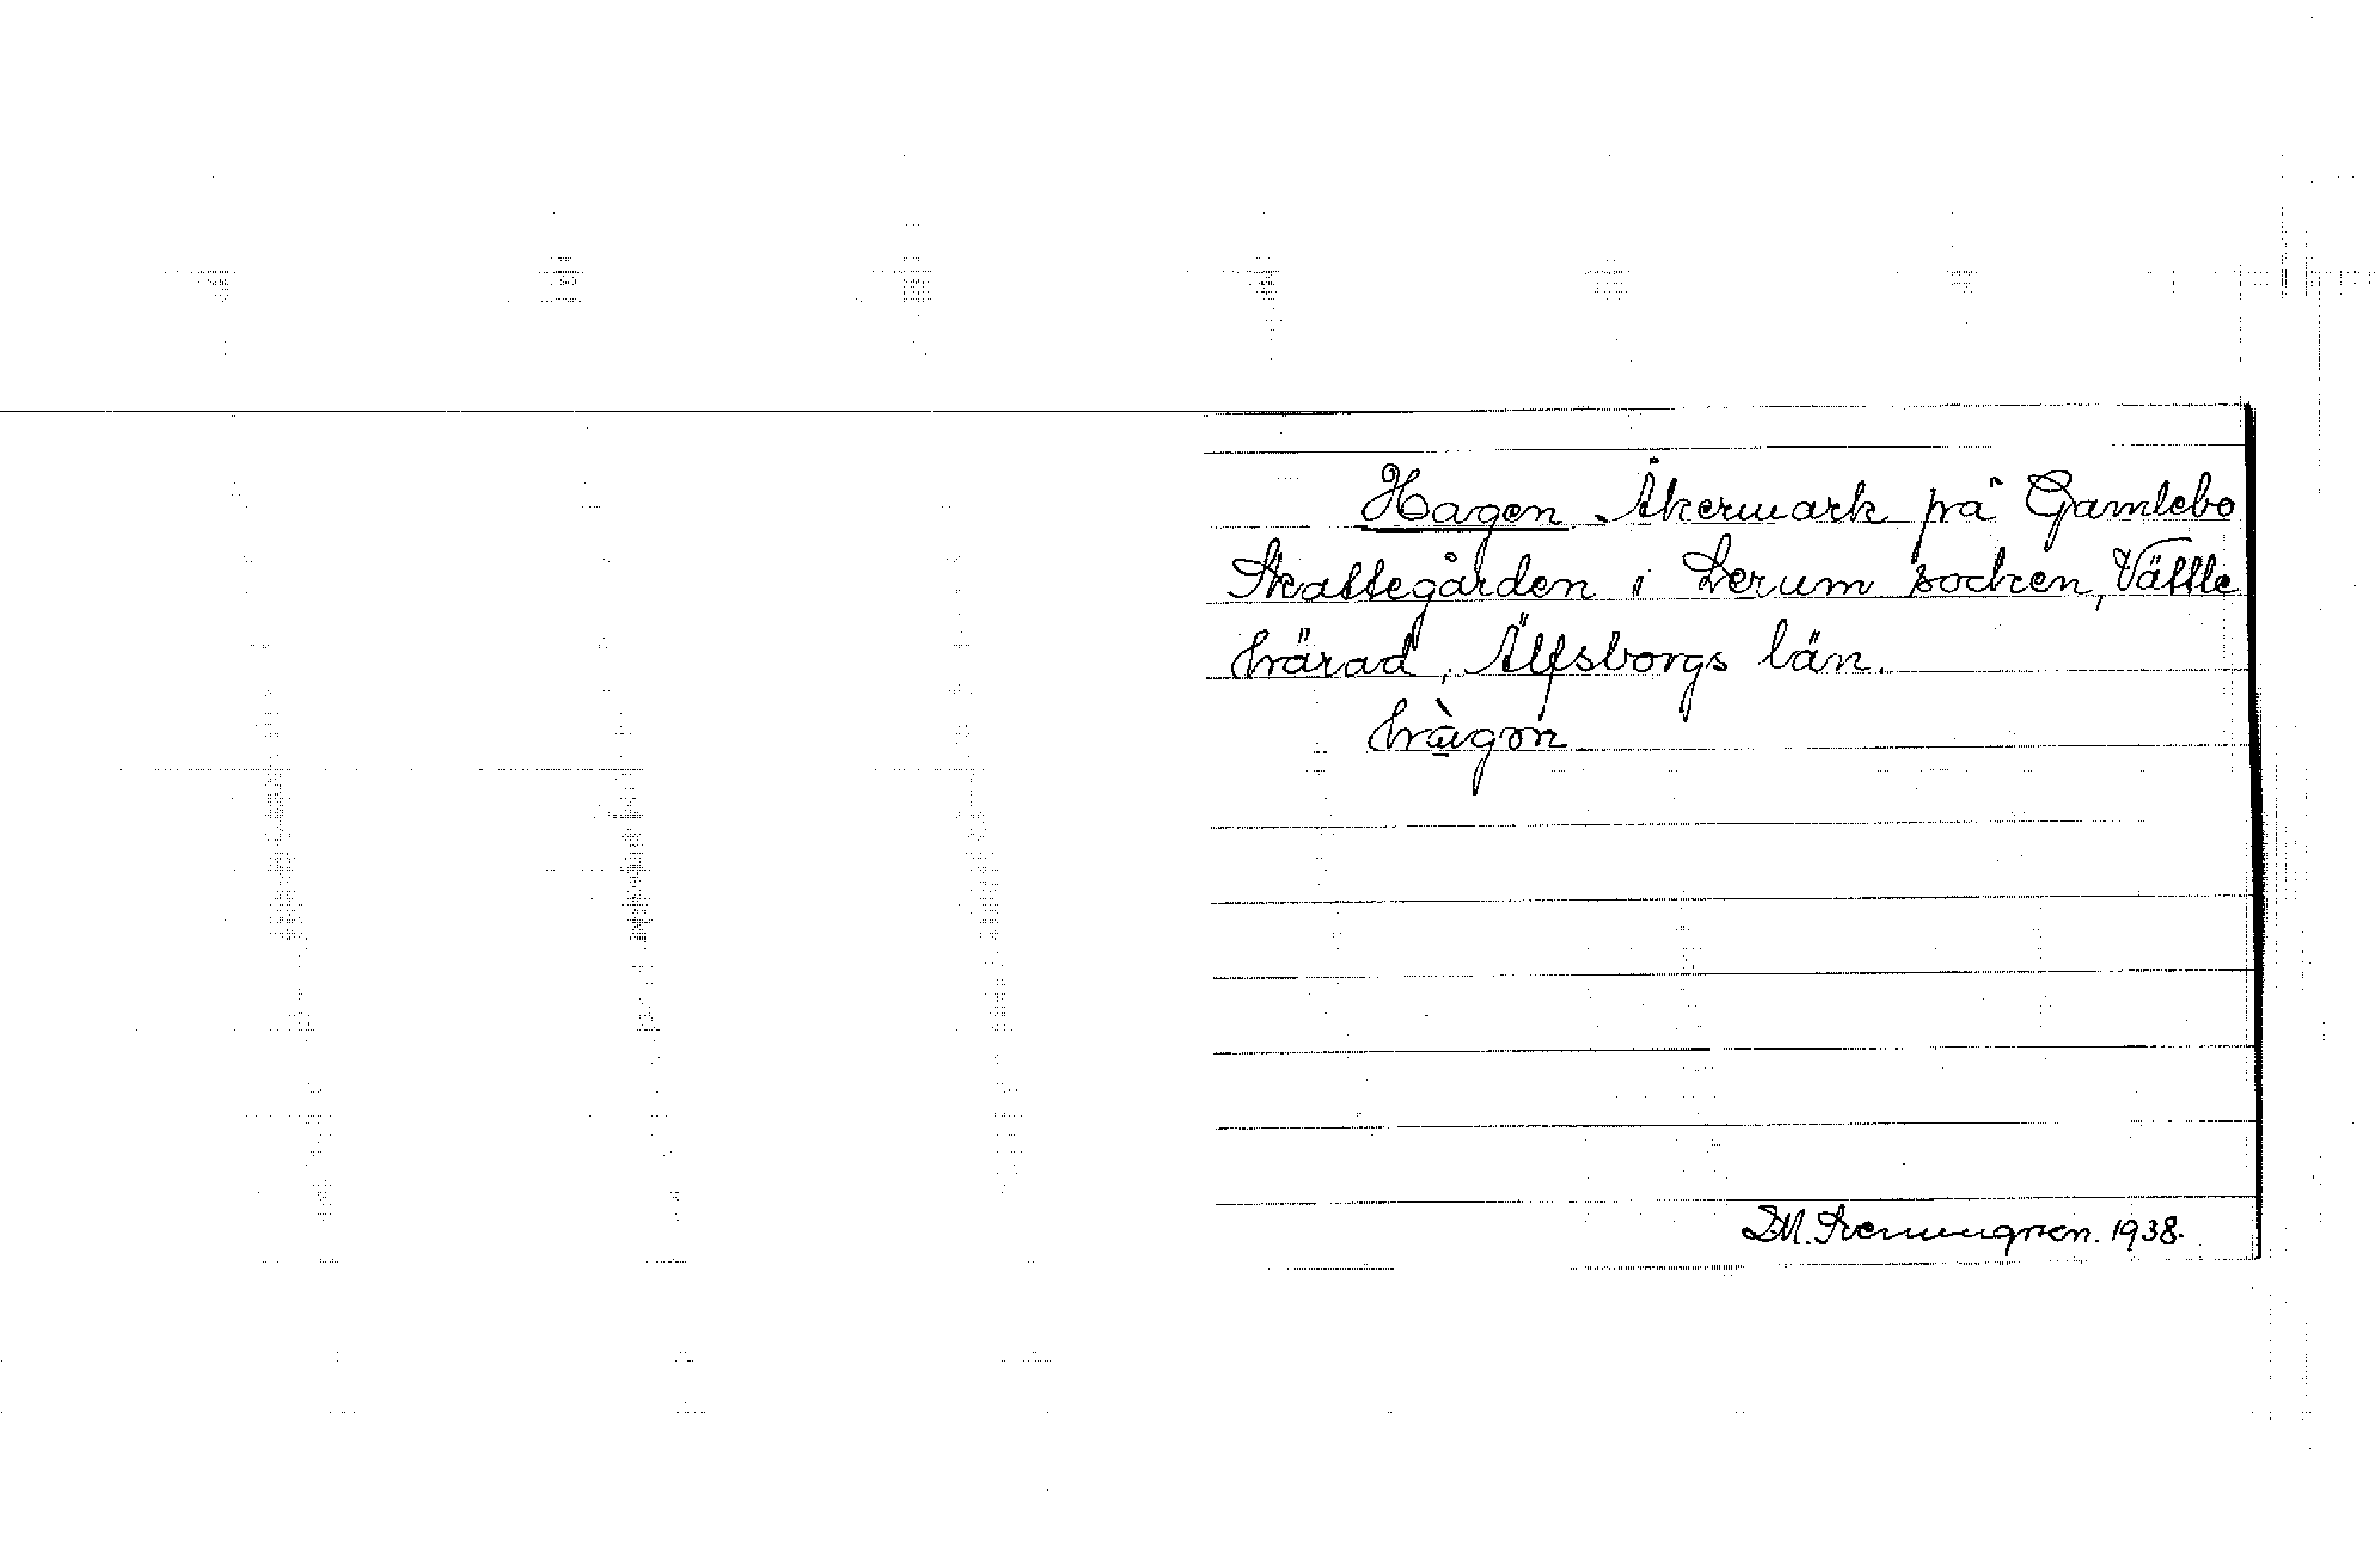 Hagen Åkermark på Gamlebo
Skattegården i Lerum socken, Vättle
härad, Älfsborgs län.
hàgɔn
1938.